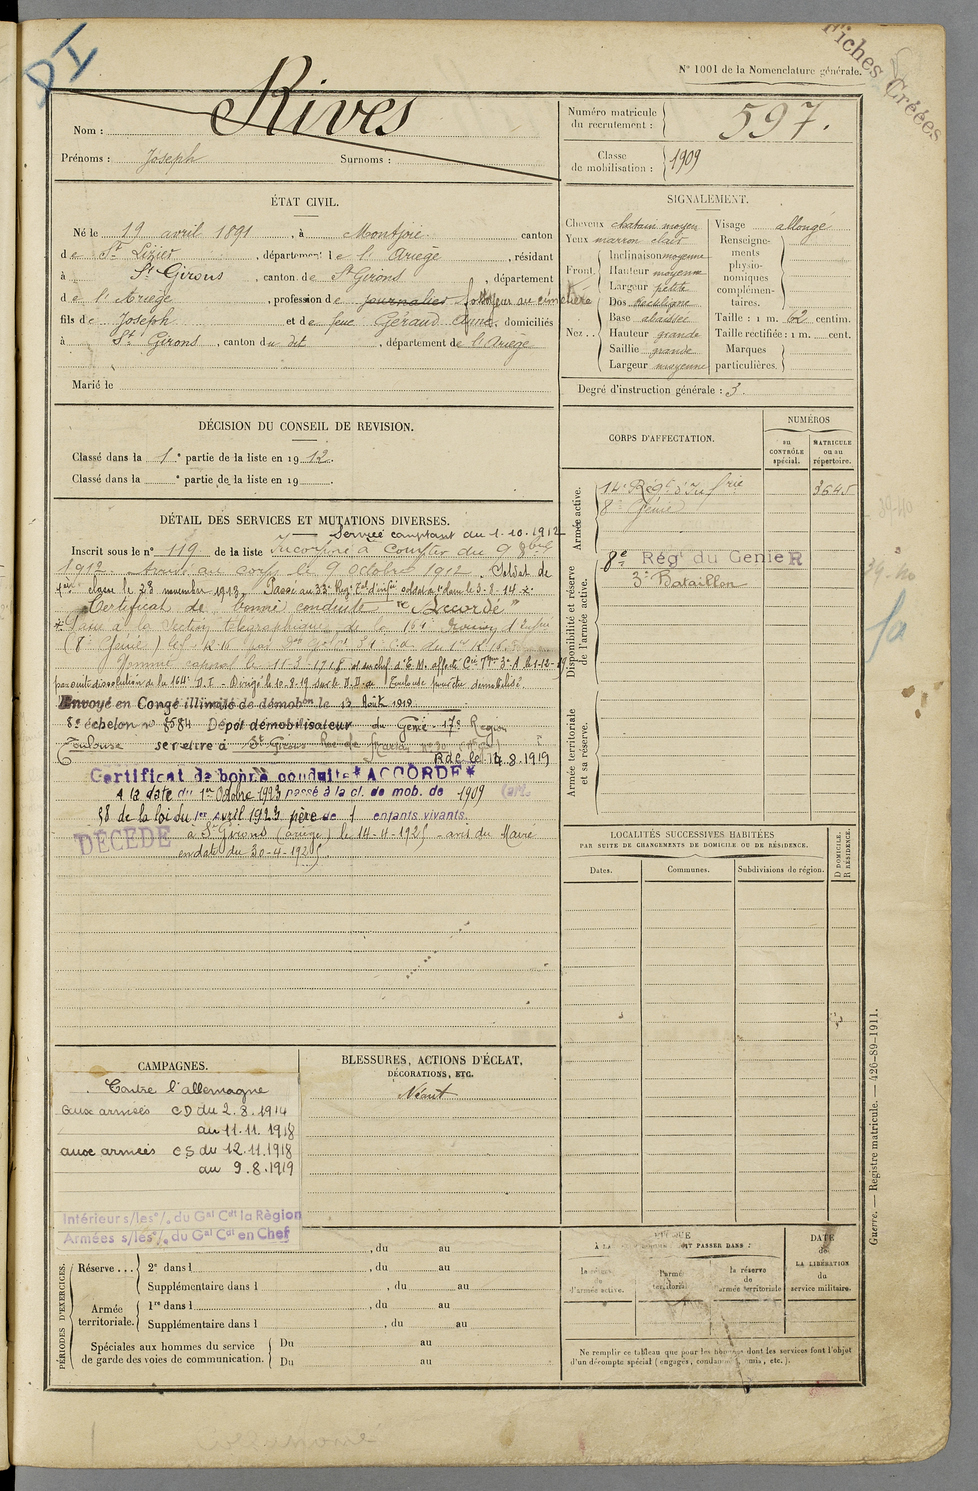 Fiches Créées
N° 1001 de la Nomenclature générale.
Nom : Rives
Prénoms : Joseph Surnoms :
Numéro matricule du recrutement : 597.
Classe de mobilisation : 1909
ÉTAT CIVIL.
Né le 19 avril 1891, à Montjoie canton
de St Lizier, département de l'Ariège, résidant
à St Girons, canton de St Girons, département
de l'Ariège, profession de journalier fossoyeur au cimetière
fils de Joseph et de feue Géraud Anne, domiciliés
à St Girons, canton du dit, département de l'Ariège
Marié le
SIGNALEMENT.
Cheveux chatain moyen
Yeux marron clair
Front. Inclinaison moyenne
Hauteur moyenne
Largeur petite
Nez.. Dos rectiligne
Base abaissée
Hauteur grande
Saillie grande
Largeur moyenne
Visage allongé
Renseignements physionomiques complémentaires.
Taille : 1 m. 62 centim.
Taille rectifiée : 1 m. cent.
Marques particulières.
Degré d'instruction générale : 3.
DÉCISION DU CONSEIL DE REVISION.
Classé dans la 1e partie de la liste en 1912.
Classé dans la e partie de la liste en 19
CORPS D'AFFECTATION.
NUMÉROS
au CONTRÔLE spécial.
MATRICULE ou au répertoire.
Armée active.
14e Régt d'Infrie 3645
8e Génie
Disponibilité et réserve de l'armée active.
8e Régt du Genie R
3e Bataillon
Armée territoriale et sa réserve.
DÉTAIL DES SERVICES ET MUTATIONS DIVERSES.
Service comptant du 1-10-1912
Inscrit sous le n° 119 de la liste Incorporé à compter du 9 8bre
1912. Arrivé au corps le 9 octobre 1912. Soldat de
1ère classe le 23 novembre 1913. Passé au 33e Régt
Certificat de bonne conduite "Accordé"
Passé à la section télégraphique de la 164e
(8e Génie)
Nommé caporal le 11-3-1918
par suite dissolution de la 164e D.I. - Dirigé le 10-8-19 sur le D.D. de Toulouse pour être démobilisé.
Envoyé en Congé illimité de démobon le 13 Août 1919
8e échelon n° 8584 Dépot démobilisateur du Génie 17e Region
Toulouse se retire à St Girons
Rdc le 14.8.1919
Certificat de bonne conduite *ACCORDÉ*
A la date du 1er Octobre 1923 passé à la cl. de mob. de 1909
58 de la loi du 1er Avril 1923 père de 1 enfants vivants.
DÉCÉDÉ à St Girons (ariège) le 14-4-1925 - avis du Maire
en date du 30-4-1925.
LOCALITÉS SUCCESSIVES HABITÉES
PAR SUITE DE CHANGEMENTS DE DOMICILE OU DE RÉSIDENCE.
Dates. Communes. Subdivisions de région. D DOMICILE. R RÉSIDENCE.
CAMPAGNES.
Contre l'allemagne
aux armées CD du 2.8.1914
au 11.11.1918
aux armées CS du 12.11.1918
au 9.8.1919
Intérieur s/les °/. du Gal Cdt la Règion
Armées s/les °/. du Gal Cdt en Chef
BLESSURES, ACTIONS D'ÉCLAT,
DÉCORATIONS, ETC.
Néant
PÉRIODES D'EXERCICES.
, du au
Réserve... 2e dans l , du au
Supplémentaire dans l , du au
Armée territoriale. 1re dans l , du au
Supplémentaire dans l , du au
Spéciales aux hommes du service de garde des voies de communication. Du au
Du au
DATE de LA LIBÉRATION du service militaire.
la réserve de l'armée territoriale
Ne remplir ce tableau que pour les hommes dont les services font l'objet
d'un décompte spécial (engagés, condamnés, omis, etc.).
Guerre. — Registre matricule. — 426-89-1911.